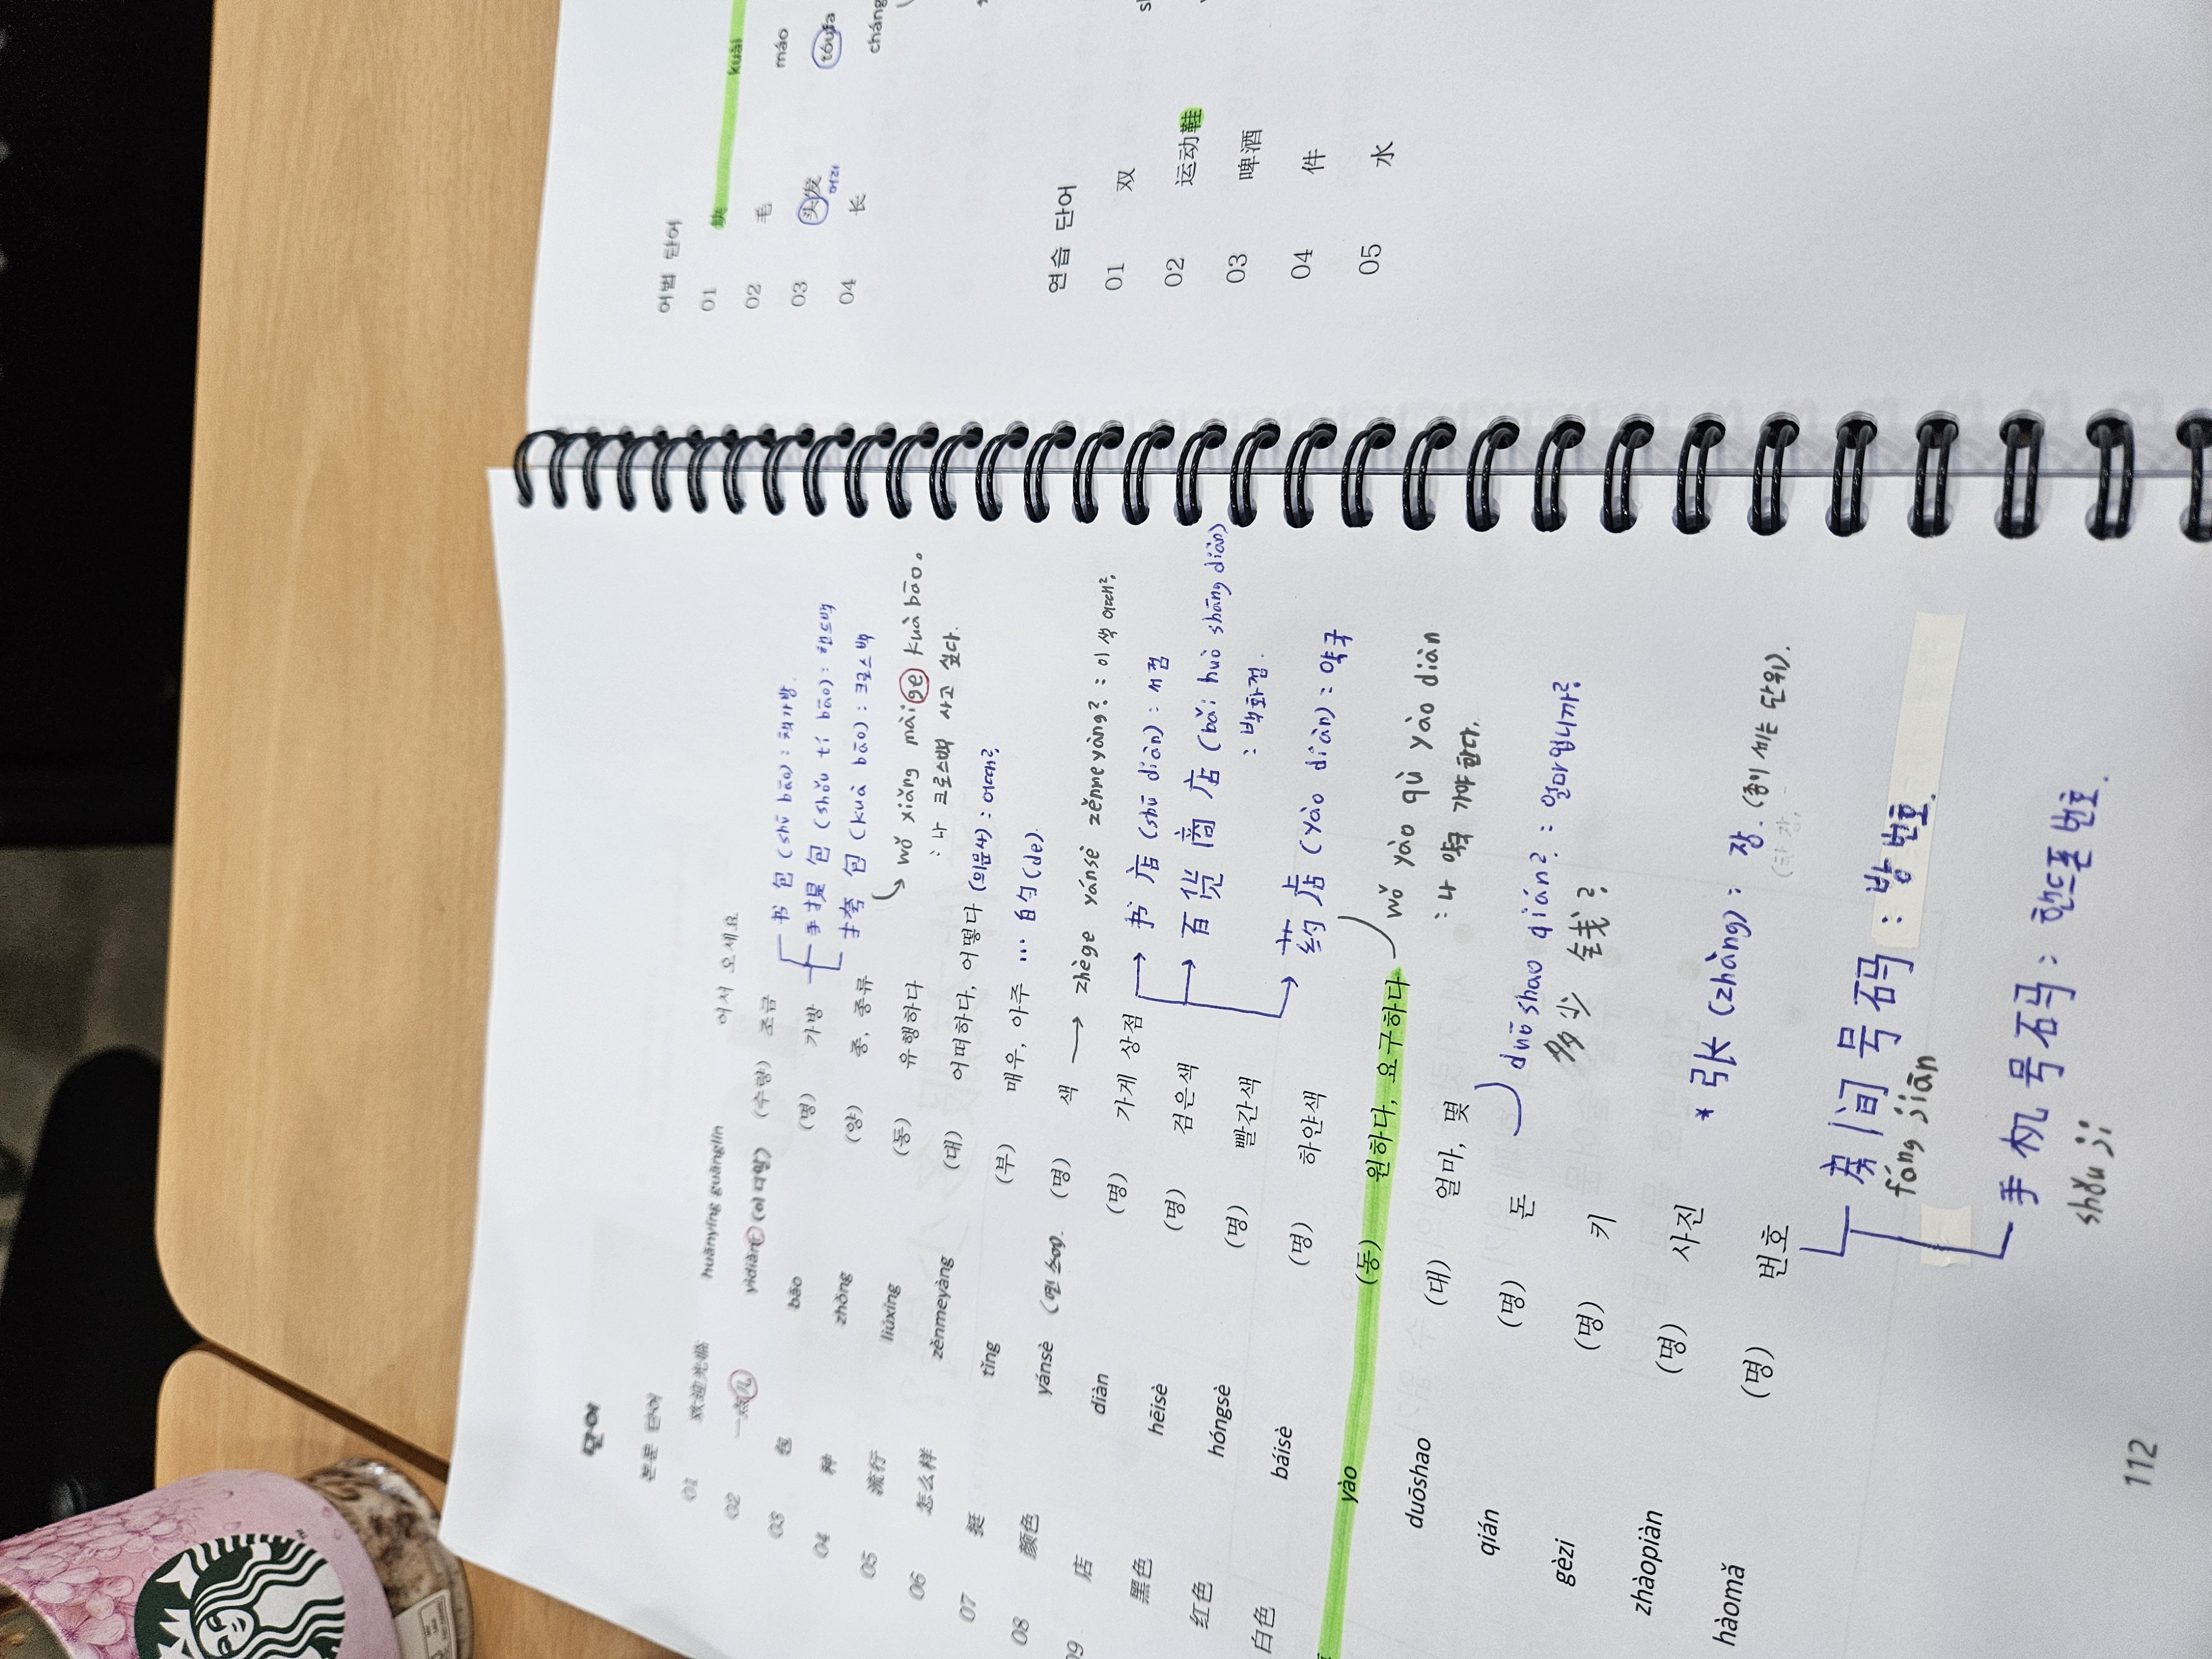 단어
본문 단어
01 欢迎光临 huānyíng guānglín 어서 오세요
02 一点儿 yìdiǎnr (이 디알) (수량) 조금
03 包 bāo (명) 가방
书包 (shū bāo) : 책가방.
手提包 (shǒu tí bāo) : 핸드백
挎包 (kuà bāo) : 크로스백
04 种 zhǒng (양) 종, 종류
05 流行 liúxíng (동) 유행하다
wǒ xiǎng mǎi ge kuà bāo。
: 나 크로스백 사고 싶다.
06 怎么样 zěnmeyàng (대) 어떠하다, 어떻다 (의문사) : 어때?
07 挺 tǐng (부) 매우, 아주 … 的 (de).
08 颜色 yánsè (명) 색 → zhège yánsè zěnme yàng? : 이 색 어때?
09 店 diàn (명) 가게 상점
书店 (shū diàn) : 서점
百货商店 (bǎi huò shāng diàn)
: 백화점.
药店 (yào diàn) : 약국
黑色 hēisè (명) 검은색
红色 hóngsè (명) 빨간색
白色 báisè (명) 하얀색
yào (동) 원하다, 요구하다
wǒ yào qù yào diàn
: 나 약국 가야 한다.
duōshao (대) 얼마, 몇
duō shao qián? : 얼마입니까?
多少 钱?
qián (명) 돈
gèzi (명) 키
zhàopiàn (명) 사진
* 张 (zhāng) : 장. (종이 세는 단위).
hàomǎ (명) 번호
房间号码 : 방 번호.
fáng jiān
手机号码 : 핸드폰 번호.
shǒu jī
112
어법 단어
01 块 kuài
02 毛 máo
03 头发 tóufa
머리
04 长 cháng
연습 단어
01 双
02 运动鞋
03 啤酒
04 件
05 水